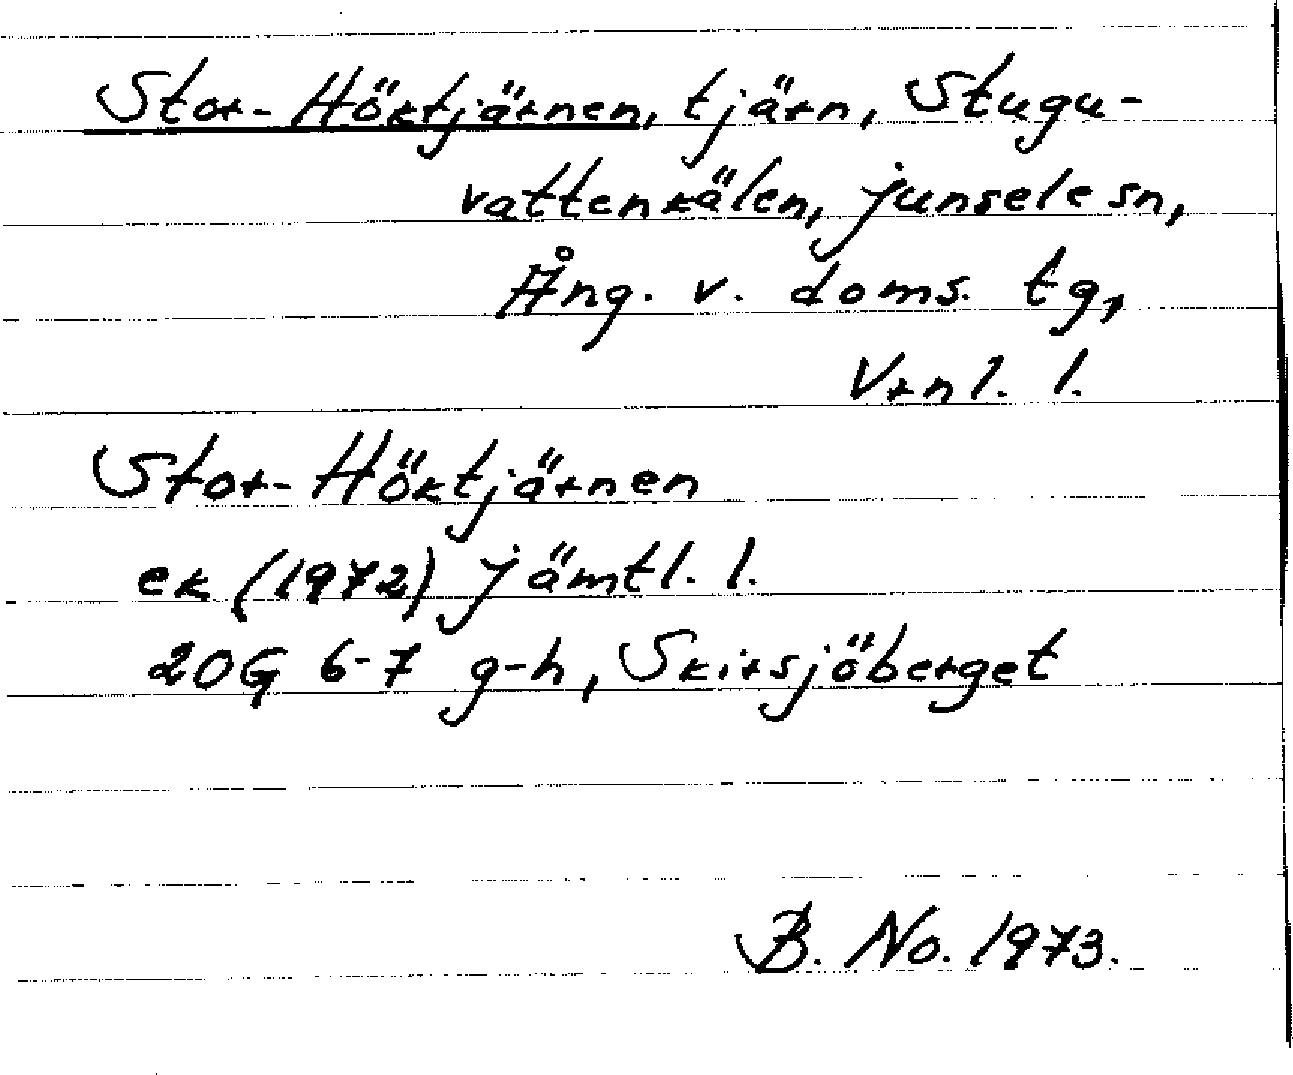 Stor-Höktjärnen, tjärn, Stugu-
vattenkälen, Junsele sn,
Ång. v. doms. tg,
Vrnl. l.
Stor-Höktjärnen
ek (1972) Jämtl. l.
20G 6-7 g-h, Skirsjöberget
B. No. 1973.